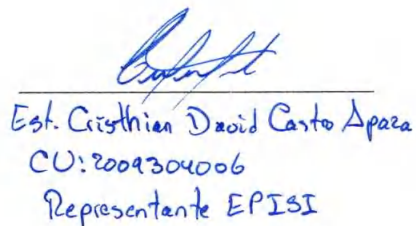 Est. Cristhian David Castro Apaza
CU: 2009304006
Representante EPISI